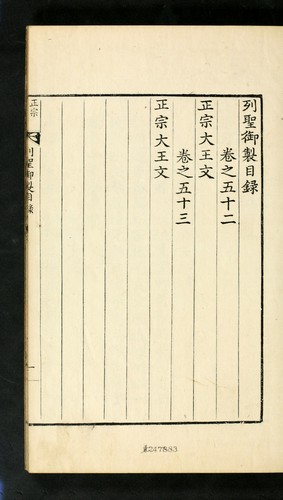 列聖御製目錄
卷之五十二
正宗大王文
卷之五十三
正宗大王文
正宗
列聖御製目錄
一
247883